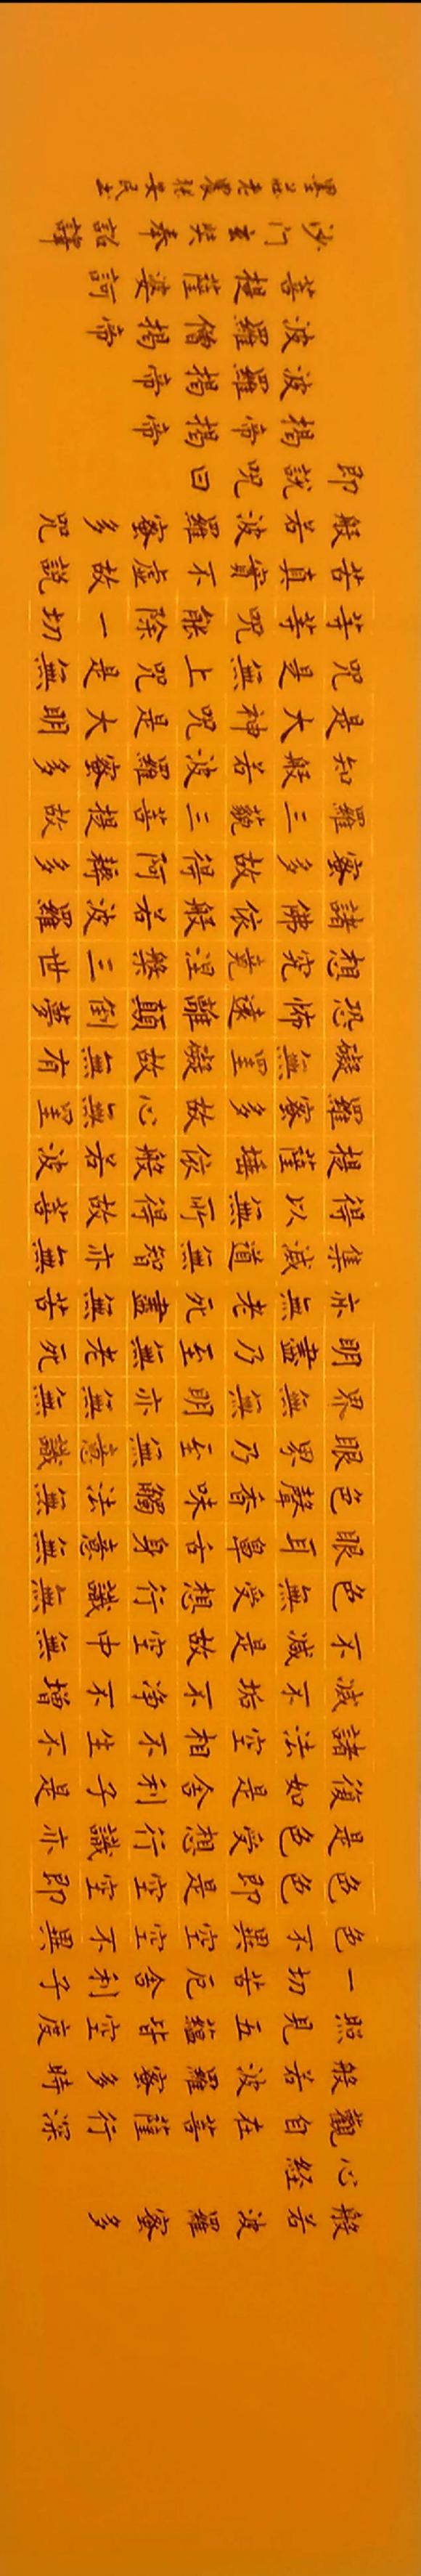 般若波羅蜜多
心経
觀自在菩薩行深
般若波羅蜜多時
照見五蘊皆空度
一切苦厄舍利子
色不異空空不異
色色即是空空即
是色受想行識亦
復如是舍利子是
諸法空相不生不
滅不垢不净不增
不減是故空中無
色無受想行識無
眼耳鼻舌身意無
色聲香味觸法無
眼界乃至無意識
界無無明亦無無
明盡乃至無老死
亦無老死盡無苦
集滅道無智亦無
得以無所得故菩
提薩埵依般若波
羅蜜多故心無罣
礙無罣礙故無有
恐怖遠離顛倒夢
想究竟涅槃三世
諸佛依般若波羅
蜜多故得阿耨多
羅三藐三菩提故
知般若波羅蜜多
是大神咒是大明
咒是無上咒是無
等等呪能除一切
苦真實不虛故説
般若波羅蜜多咒
即說呪曰
揭帝揭帝
波羅揭帝
波羅僧揭帝
菩提薩婆訶
沙门玄奘奉詔譯
墨莊老農張安民